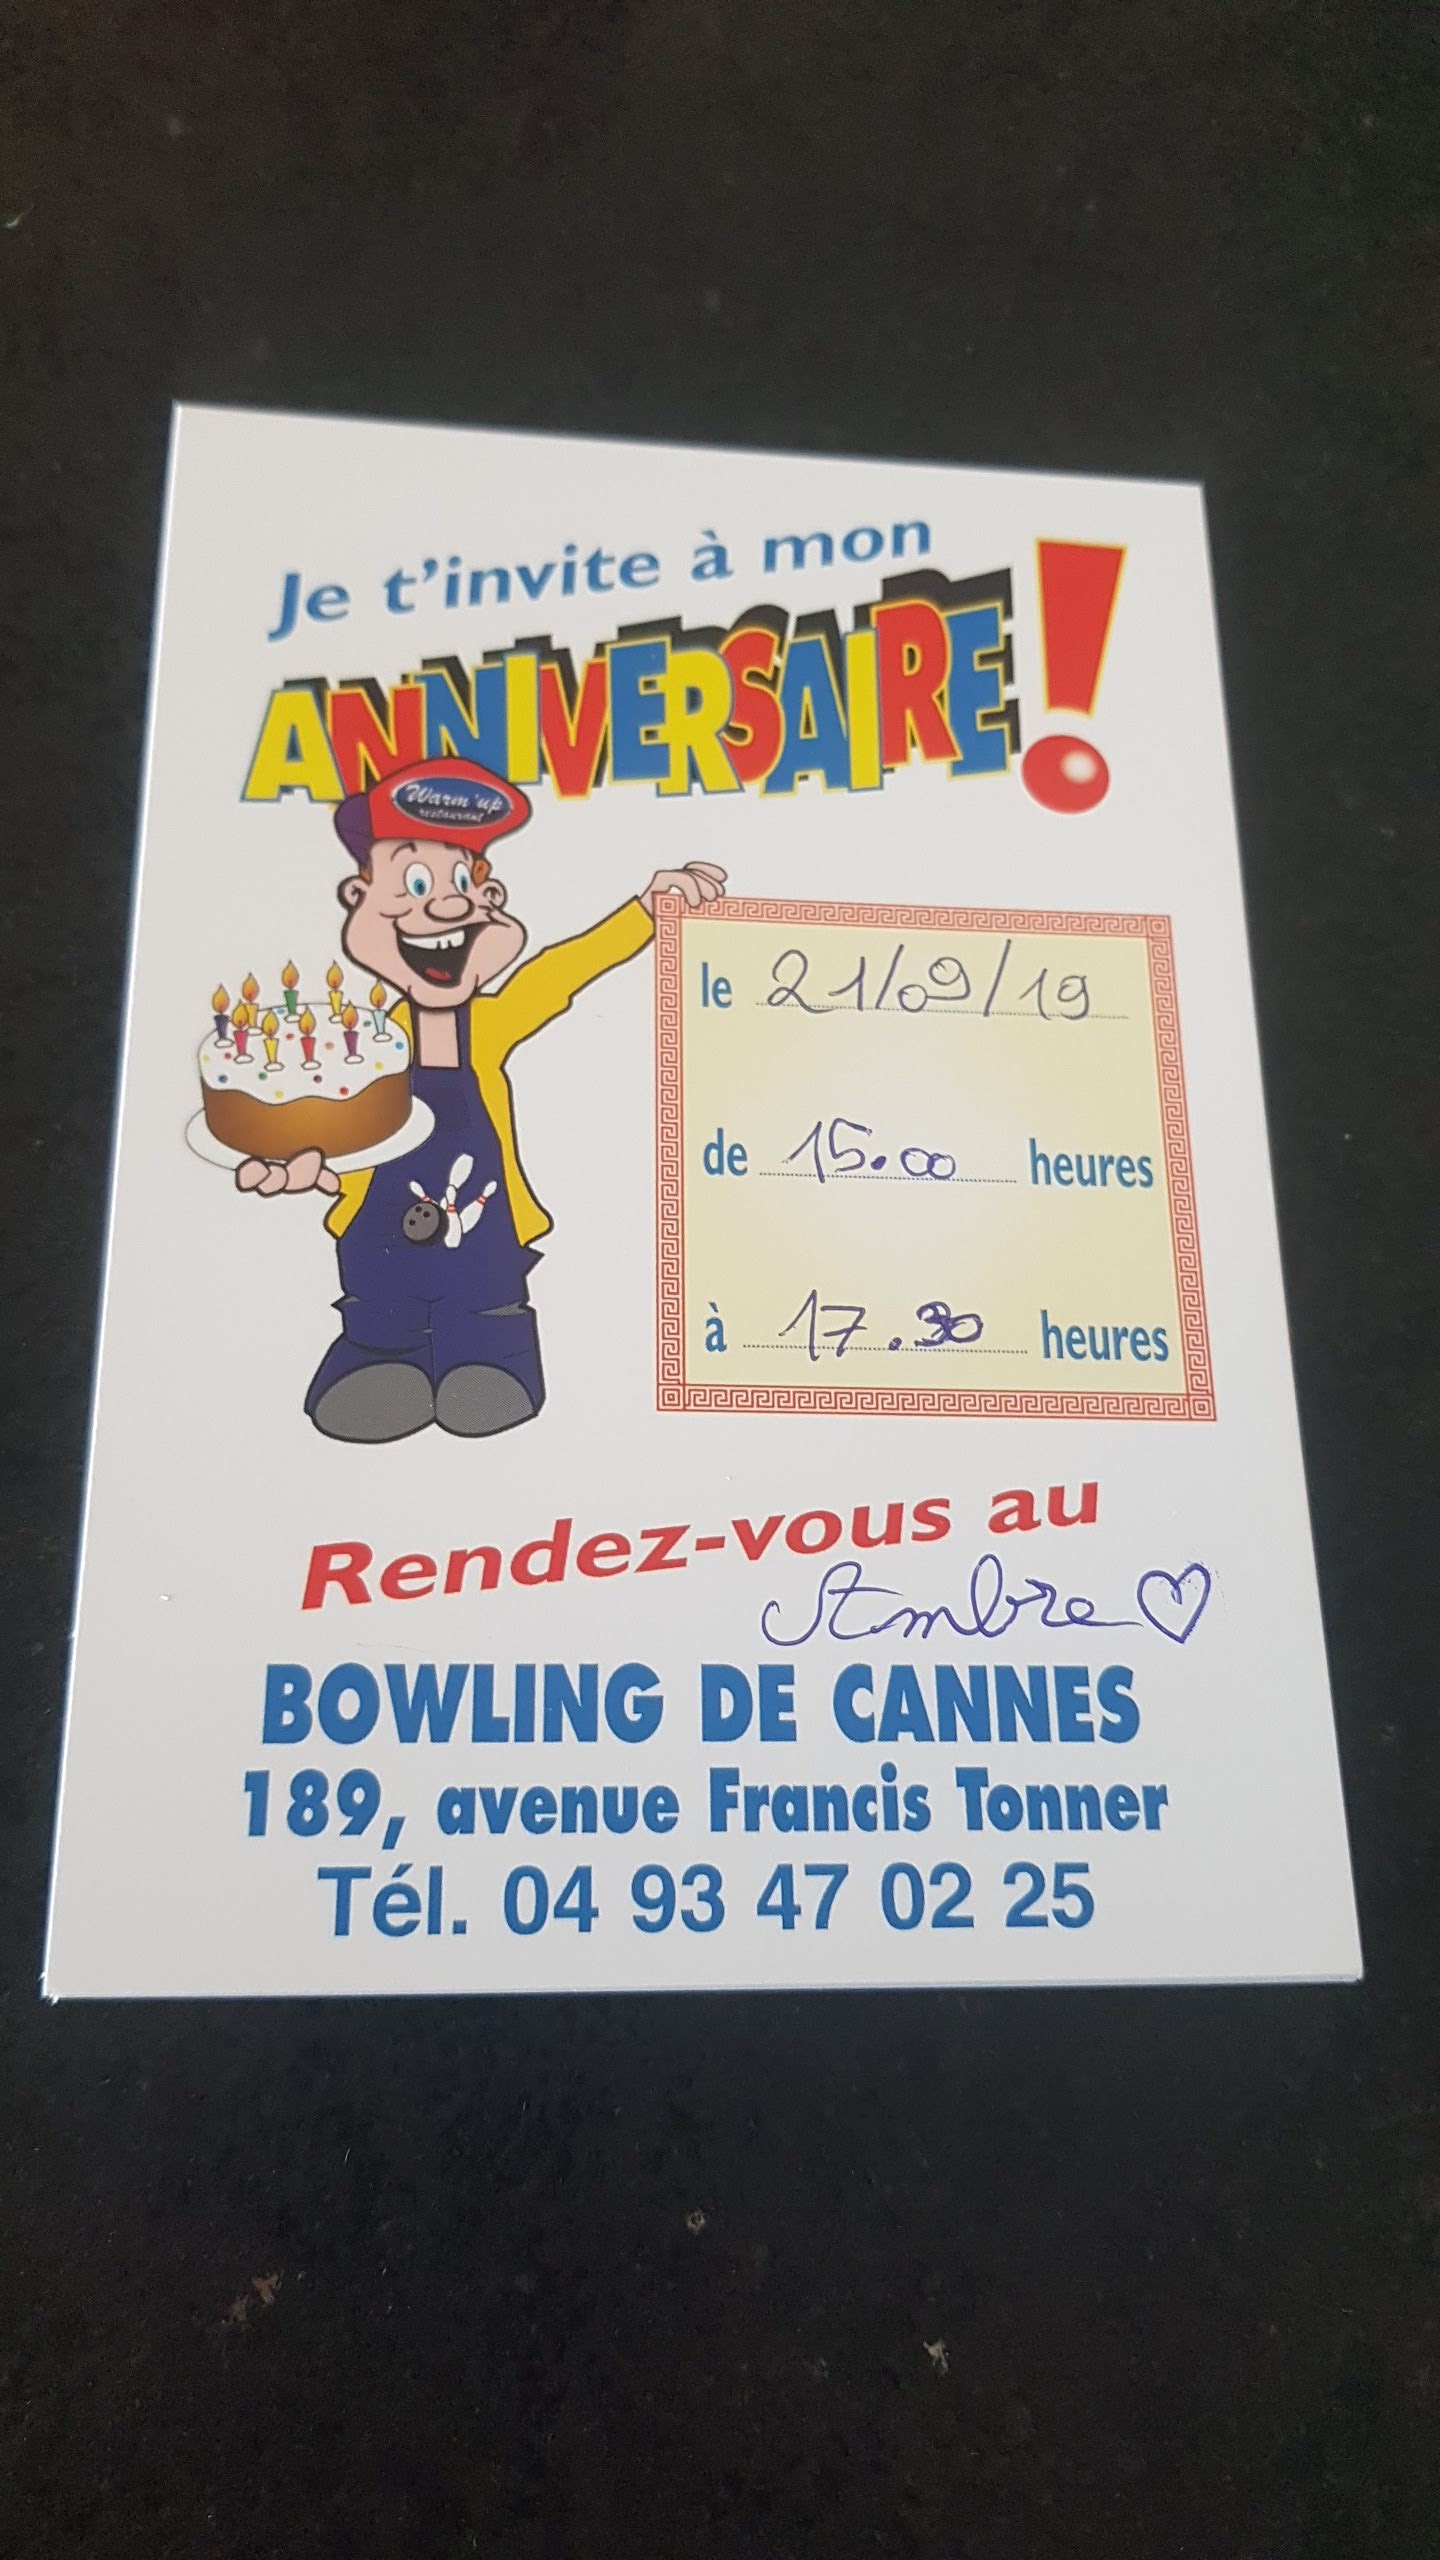 Je t'invite à mon
ANNIVERSAIRE !
Warm'up
restaurant
le 21/09/19
de 15.00 heures
à 17.30 heures
Rendez-vous au
Ambre ♡
BOWLING DE CANNES
189, avenue Francis Tonner
Tél. 04 93 47 02 25